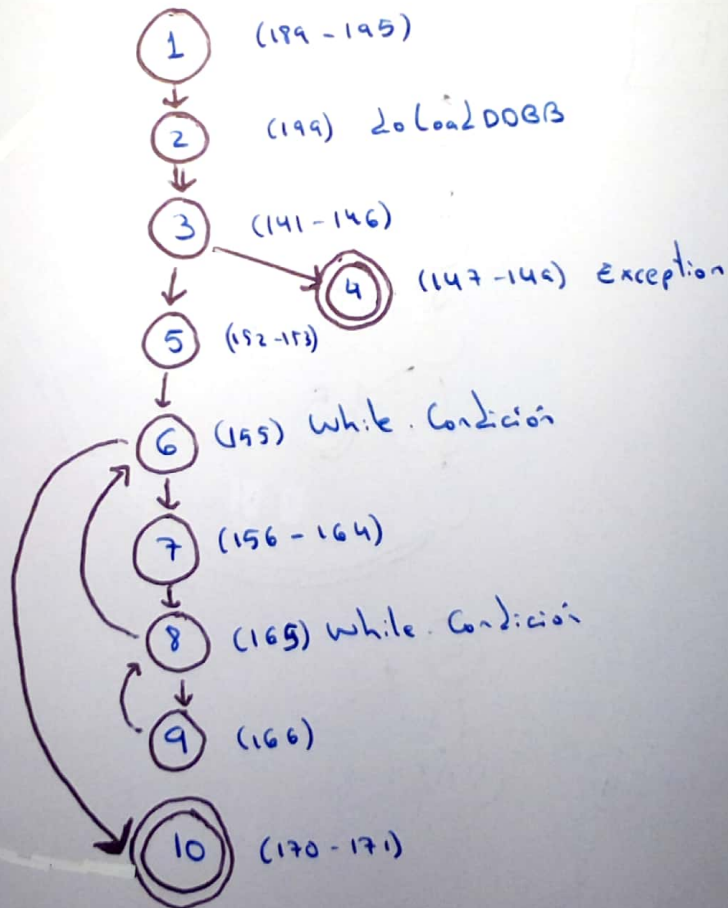 1 (189-195)
2 (199) doLoadDOBB
3 (141-146)
4 (147-149) Exception
5 (152-153)
6 (155) While. Condición
7 (156-164)
8 (165) While. Condición
9 (166)
10 (170-171)